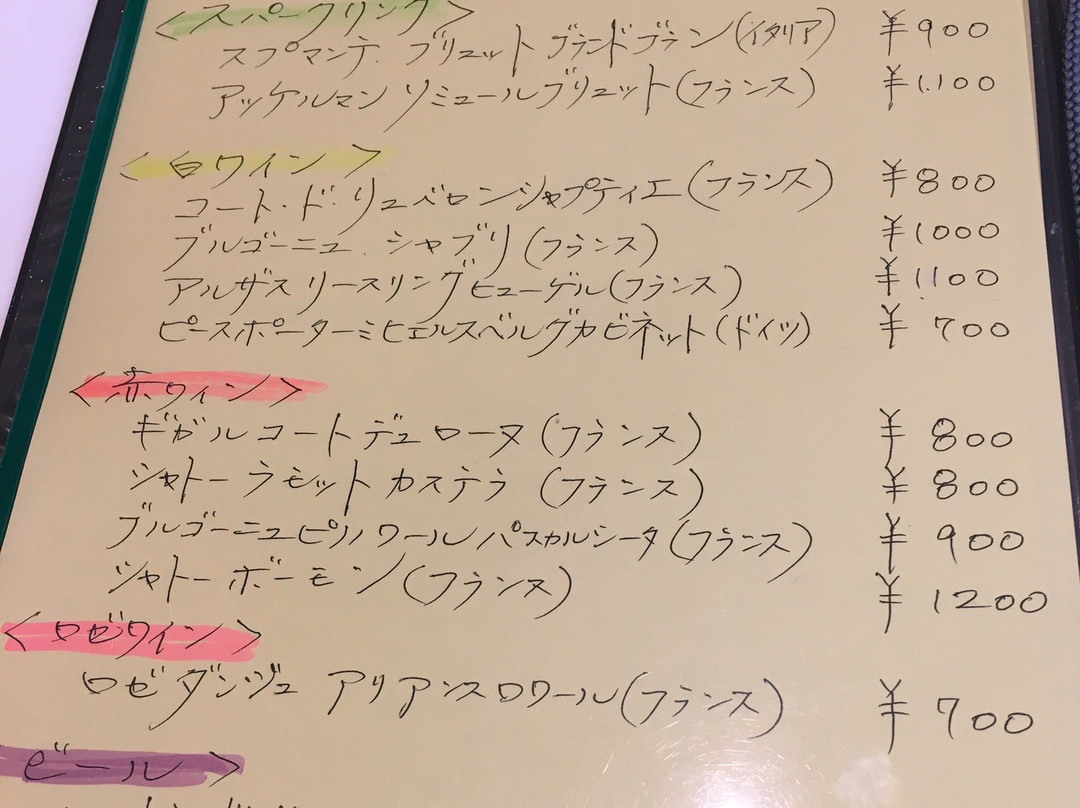 <スパークリング>
スプマンテ.ブリュット ブランドブラン(イタリア) ¥900
アッケルマン リミュールブリュット(フランス) ¥1.100
<白ワイン>
コート・ド・リュベロンシャプティエ(フランス) ¥800
ブルゴーニュ.シャブリ(フランス) ¥1000
アルザスリースリングヒューゲル(フランス) ¥1100
ピースポーターミヒェルスベルグカビネット(ドイツ) ¥700
<赤ワイン>
ギガルコートデュローヌ(フランス) ¥800
シャトーラモットカステラ(フランス) ¥800
ブルゴーニュピノノワールパスカルシータ(フランス) ¥900
シャトーボーモン(フランス) ¥1200
<ロゼワイン>
ロゼダンジュ アリアンスロワール(フランス) ¥700
<ビール>